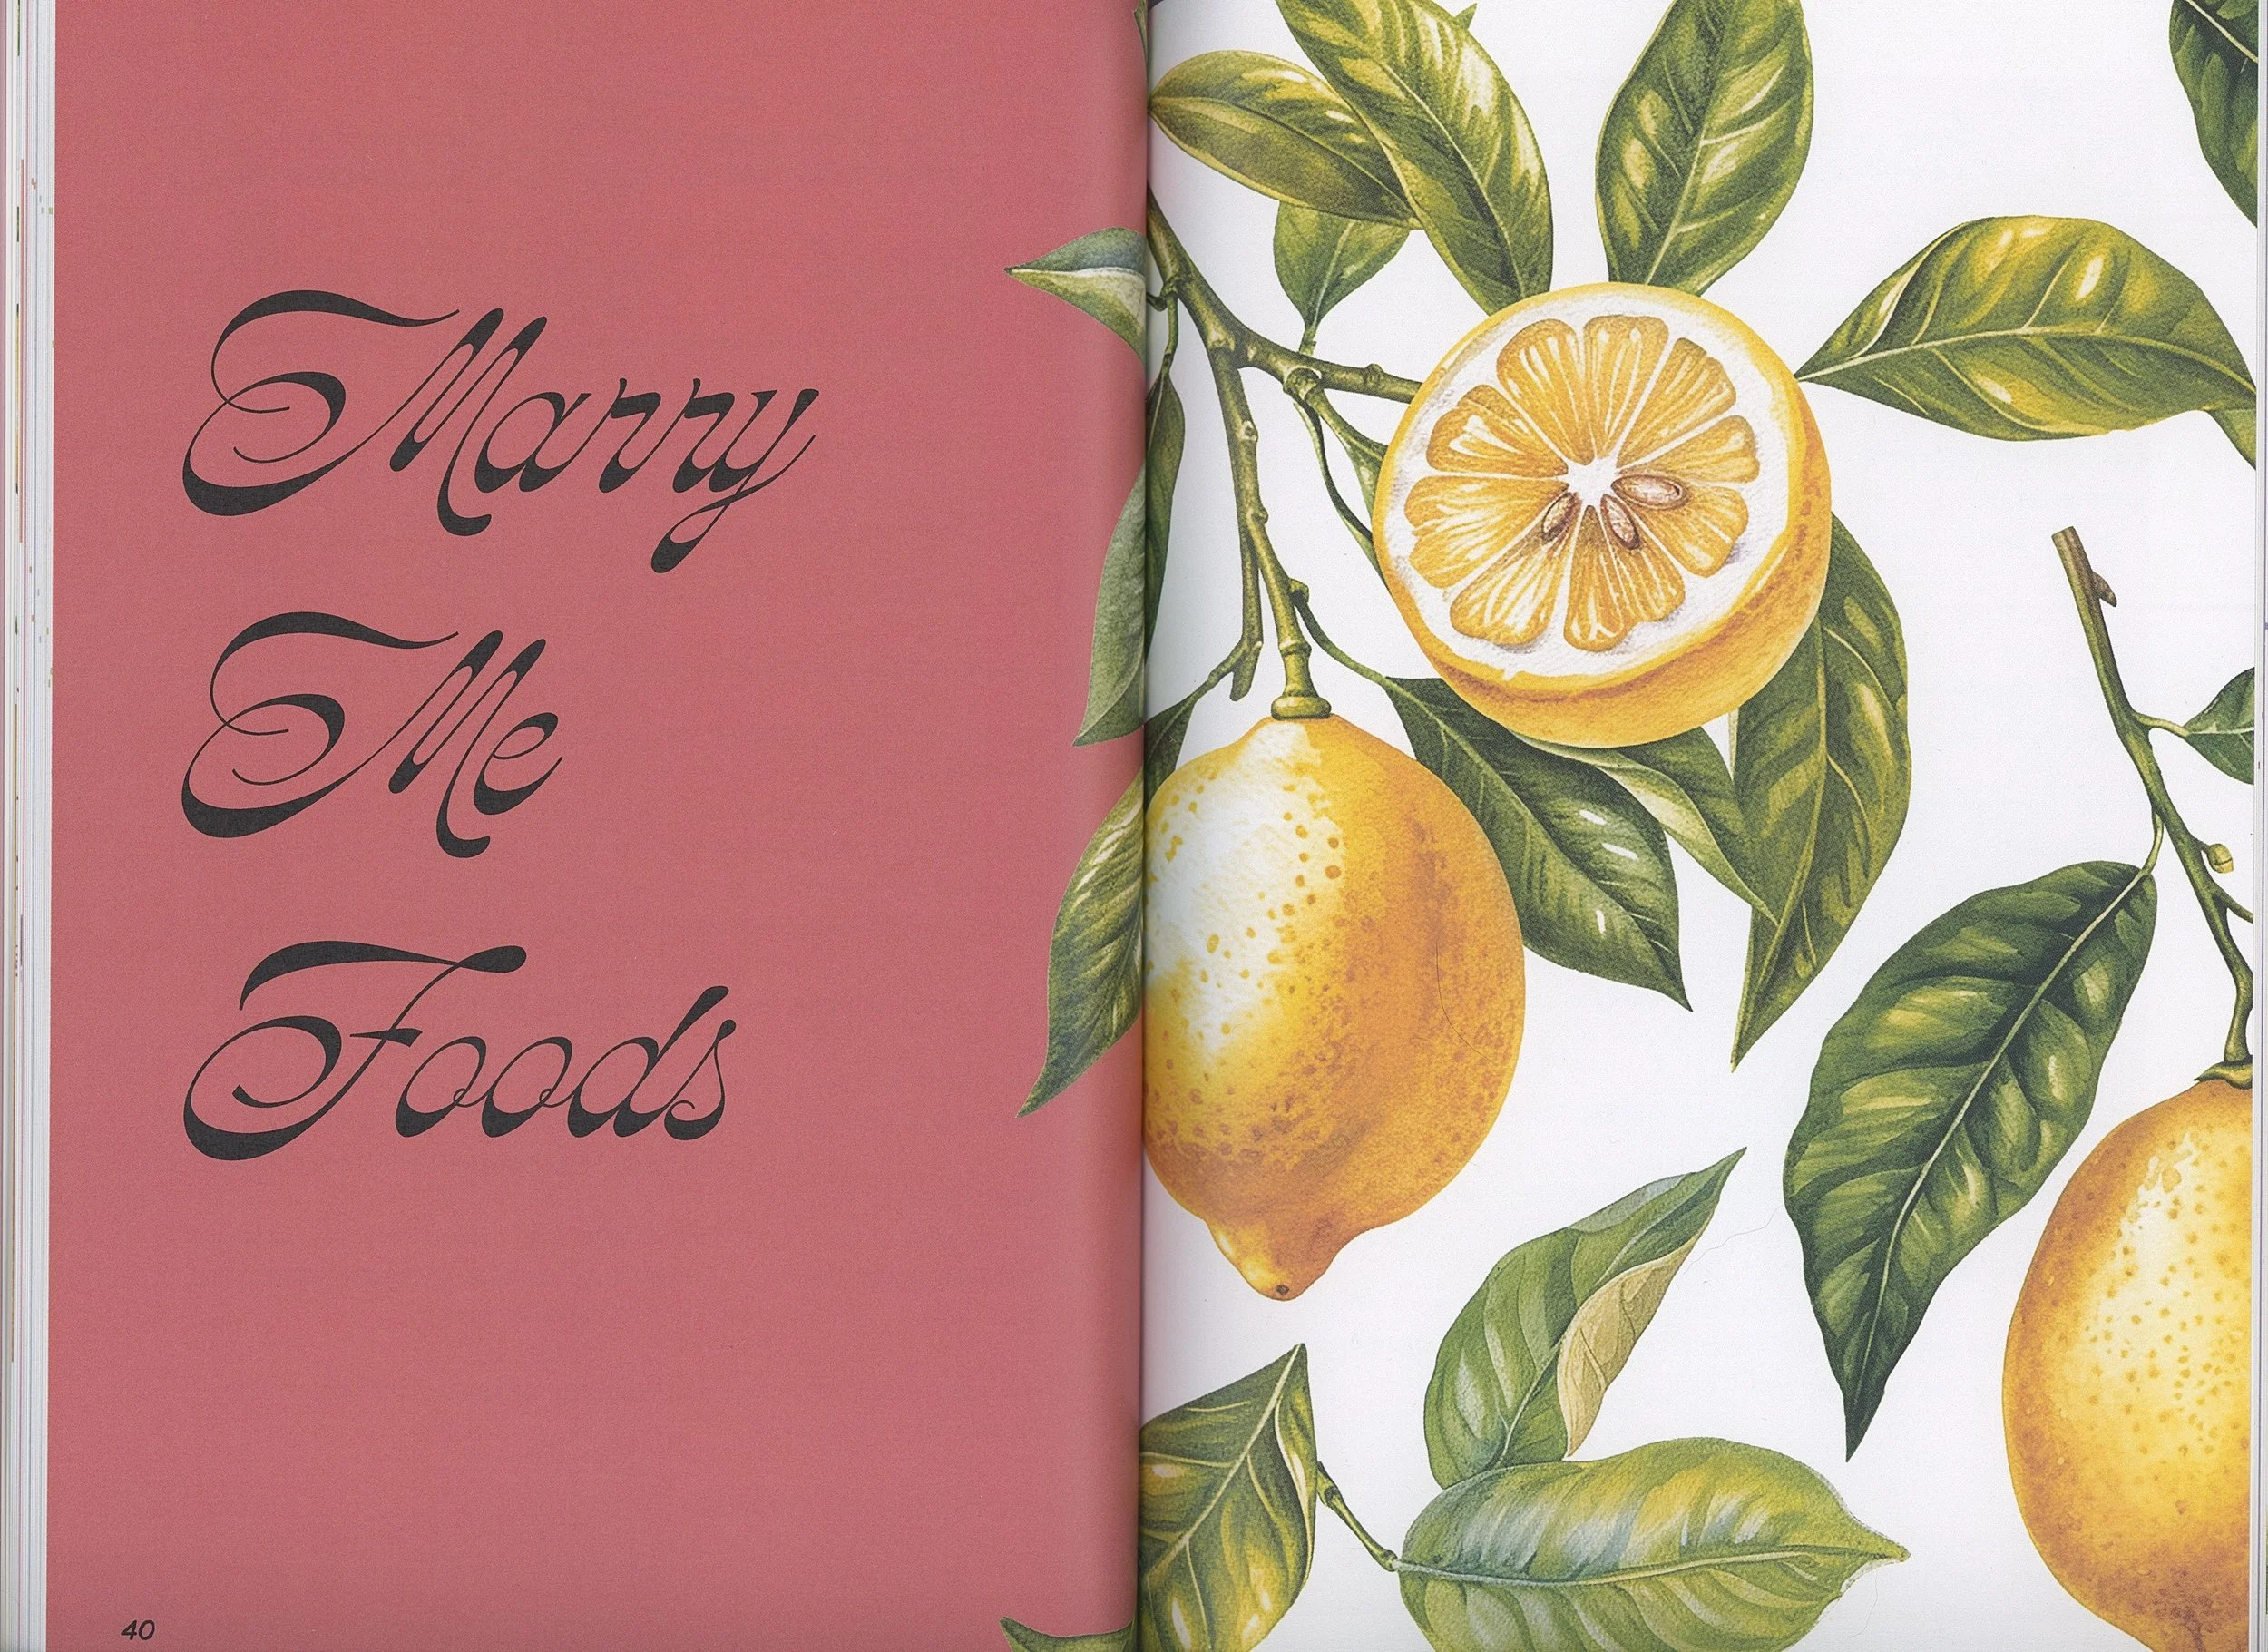 Marry
Me
Foods
40